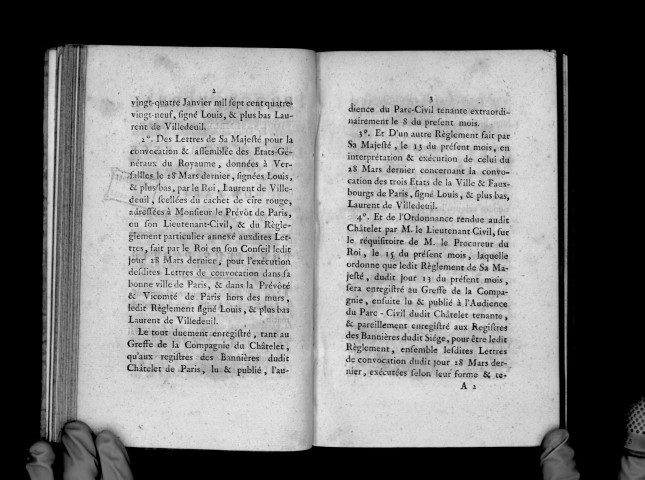 2
vingt-quatre Janvier mil ſept cent quatre-
vingt-neuf, ſigné Louis, & plus bas Lau-
rent de Villedeuil.
2°. Des Lettres de Sa Majeſté pour la
convocation & aſſemblée des Etats-Gé-
néraux du Royaume, données à Ver-
ſailles le 28 Mars dernier, ſignées Louis,
& plus bas, par le Roi, Laurent de Ville-
deuil, ſcellées du cachet de cire rouge,
adreſſées à Monſieur le Prévôt de Paris,
ou ſon Lieutenant-Civil, & du Règle-
glement particulier annexé auxdites Let-
tres, fait par le Roi en ſon Conſeil ledit
jour 28 Mars dernier, pour l'exécution
deſdites Lettres de convocation dans ſa
bonne ville de Paris, & dans la Prévôté
& Vicomté de Paris hors des murs,
ledit Règlement ſigné Louis, & plus bas
Laurent de Villedeuil.
Le tout duement enregiſtré, tant au
Greffe de la Compagnie du Châtelet,
qu'aux regiſtres des Bannières dudit
Châtelet de Paris, lu & publié, l'au-
3
dience du Parc-Civil tenante extraordi-
nairement le 8 du preſent mois.
3°. Et D'un autre Règlement fait par
Sa Majeſté, le 13 du préſent mois, en
interprétation & exécution de celui du
28 Mars dernier concernant la convo-
cation des trois Etats de la Ville & Faux-
bourgs de Paris, ſigné Louis, & plus bas,
Laurent de Villedeuil.
4°. Et de l'Ordonnance rendue audit
Châtelet par M. le Lieutenant Civil, ſur
le réquiſitoire de M. le Procureur du
Roi, le 15 du préſent mois, laquelle
ordonne que ledit Règlement de Sa Ma-
jeſté, dudit jour 13 du préſent mois,
ſera enregiſtré au Greffe de la Compa-
gnie, enſuite lu & publié à l'Audience
du Parc-Civil dudit Châtelet tenante,
& pareillement enregiſtré aux Regiſtres
des Bannières dudit Siége, pour être ledit
Règlement, enſemble leſdites Lettres
de convocation dudit jour 28 Mars der-
nier, exécutées ſelon leur forme & te-
A 2